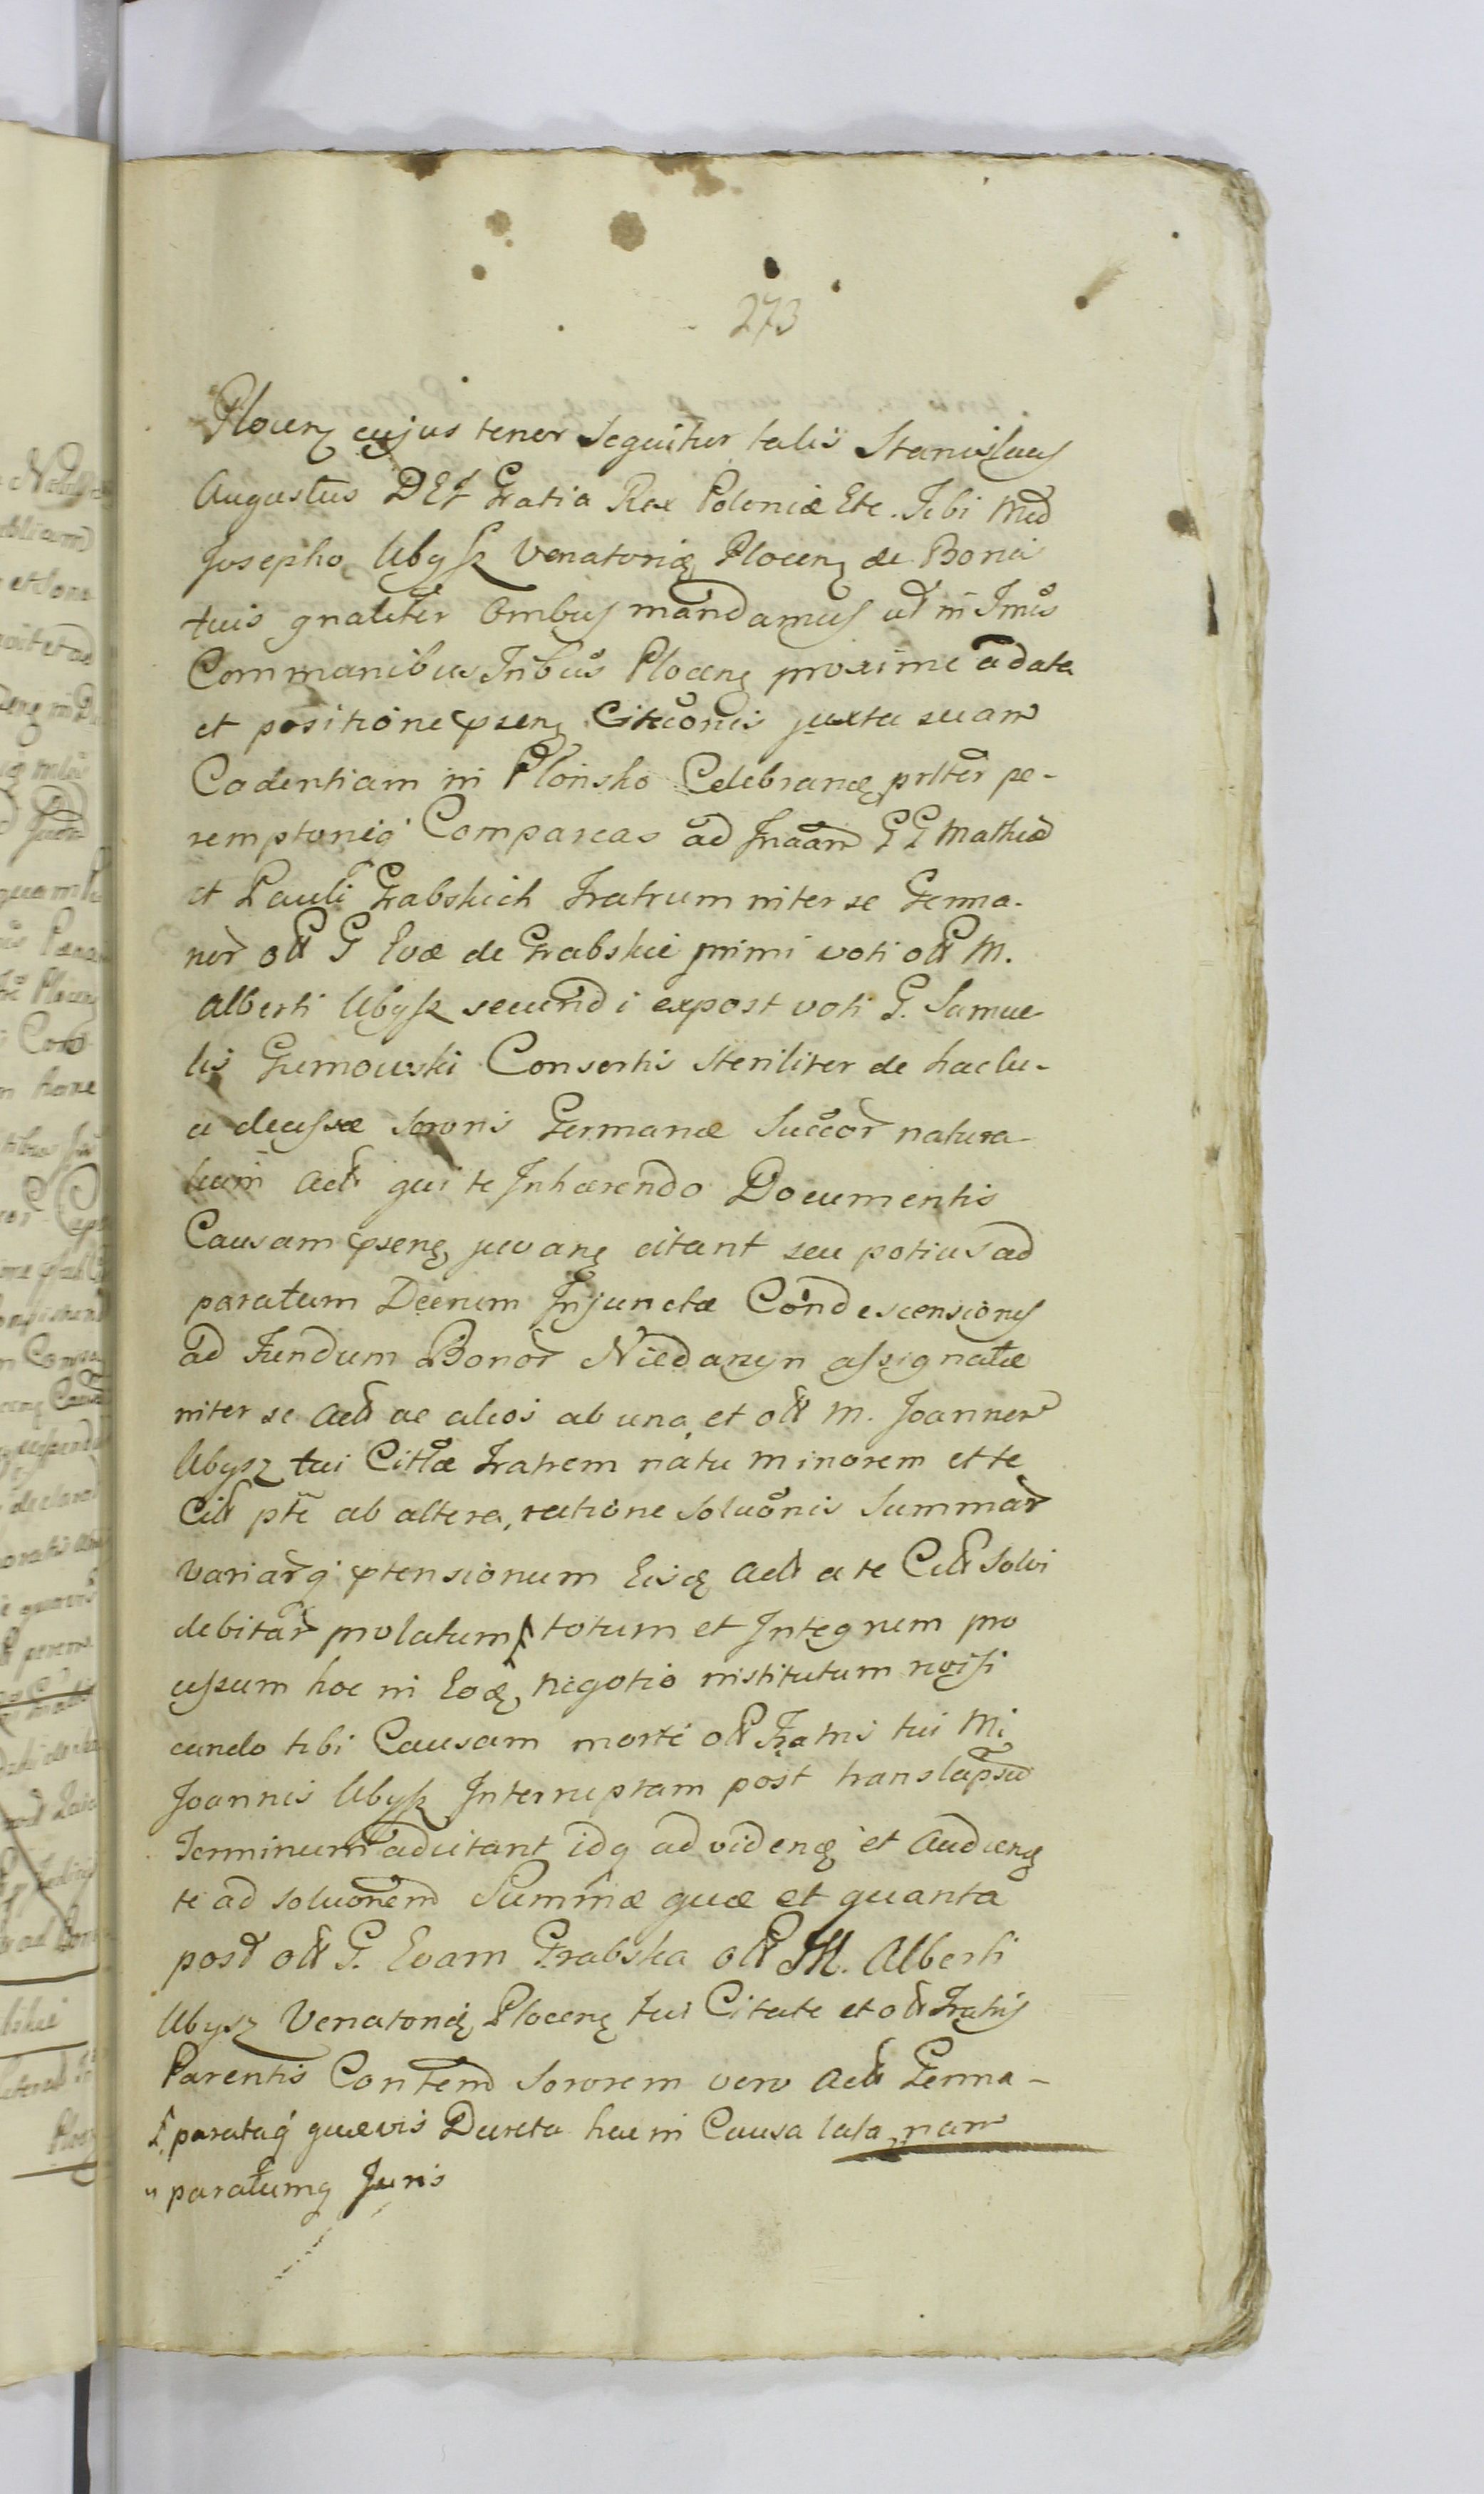 273
Plocen cujus tenor sequitur talis Stanislaus
Augustus DEI Gratia Rex Poloniæ Etc. Tibi Mco
Josepho Ubysz Venatoriæ Plocen de Bonis
tuis gnaliter Ombus mandamus ut in Jmis
Communibus Tribus Plocen proxime a data
et positione psen Citaonis juxta suam
Cadentiam in Płońsko Celebran prlter pe-
remptorieq Compareas ad Jnaam GG Mathiæ
et Pauli Grabskich Fratrum inter se Germa-
nor olt G Evæ de Grabskie primi voti olt M.
Alberti Ubysz secundi expost voti G. Samue
lis Gumowski Consortis steriliter de hac lu-
ce decessæ Sororis Germanæ Succor natura-
lium Act qui te Inhærendo Documentis
Causam psen juvan citant seu potius ad
paratum Decrum Injunctæ Condescensionis
ad Fundum Bonor Niedarzyn assignatæ
inter se Act ac alios ab una, et olt M. Joannem
Ubysz tui Citti Fratrem natu minorem et te
Citt pte ab altera, ratione soluonis Summar
variarq ptensionum Eisd Act a te Citt Solvi
debitar prolatum totum et Integrum pro
cessum hoc in Eod negotio institutum reassu
cundo tibi Causam morte olt Fratris tui Mi
Joannis Ubysz Interruptam post translapsum
Terminum adcitant idq ad viden et Audien
te ad soluonem Summæ quæ et quanta
post olt G. Evam Grabska olt M. Alberti
Ubysz Venatorid Plocen tui Citate et olt Fratris
Parentis Contem Sororem vero Act Germa-
paratq quævis Decreta hac in Causa lata nam
paratumq Juris